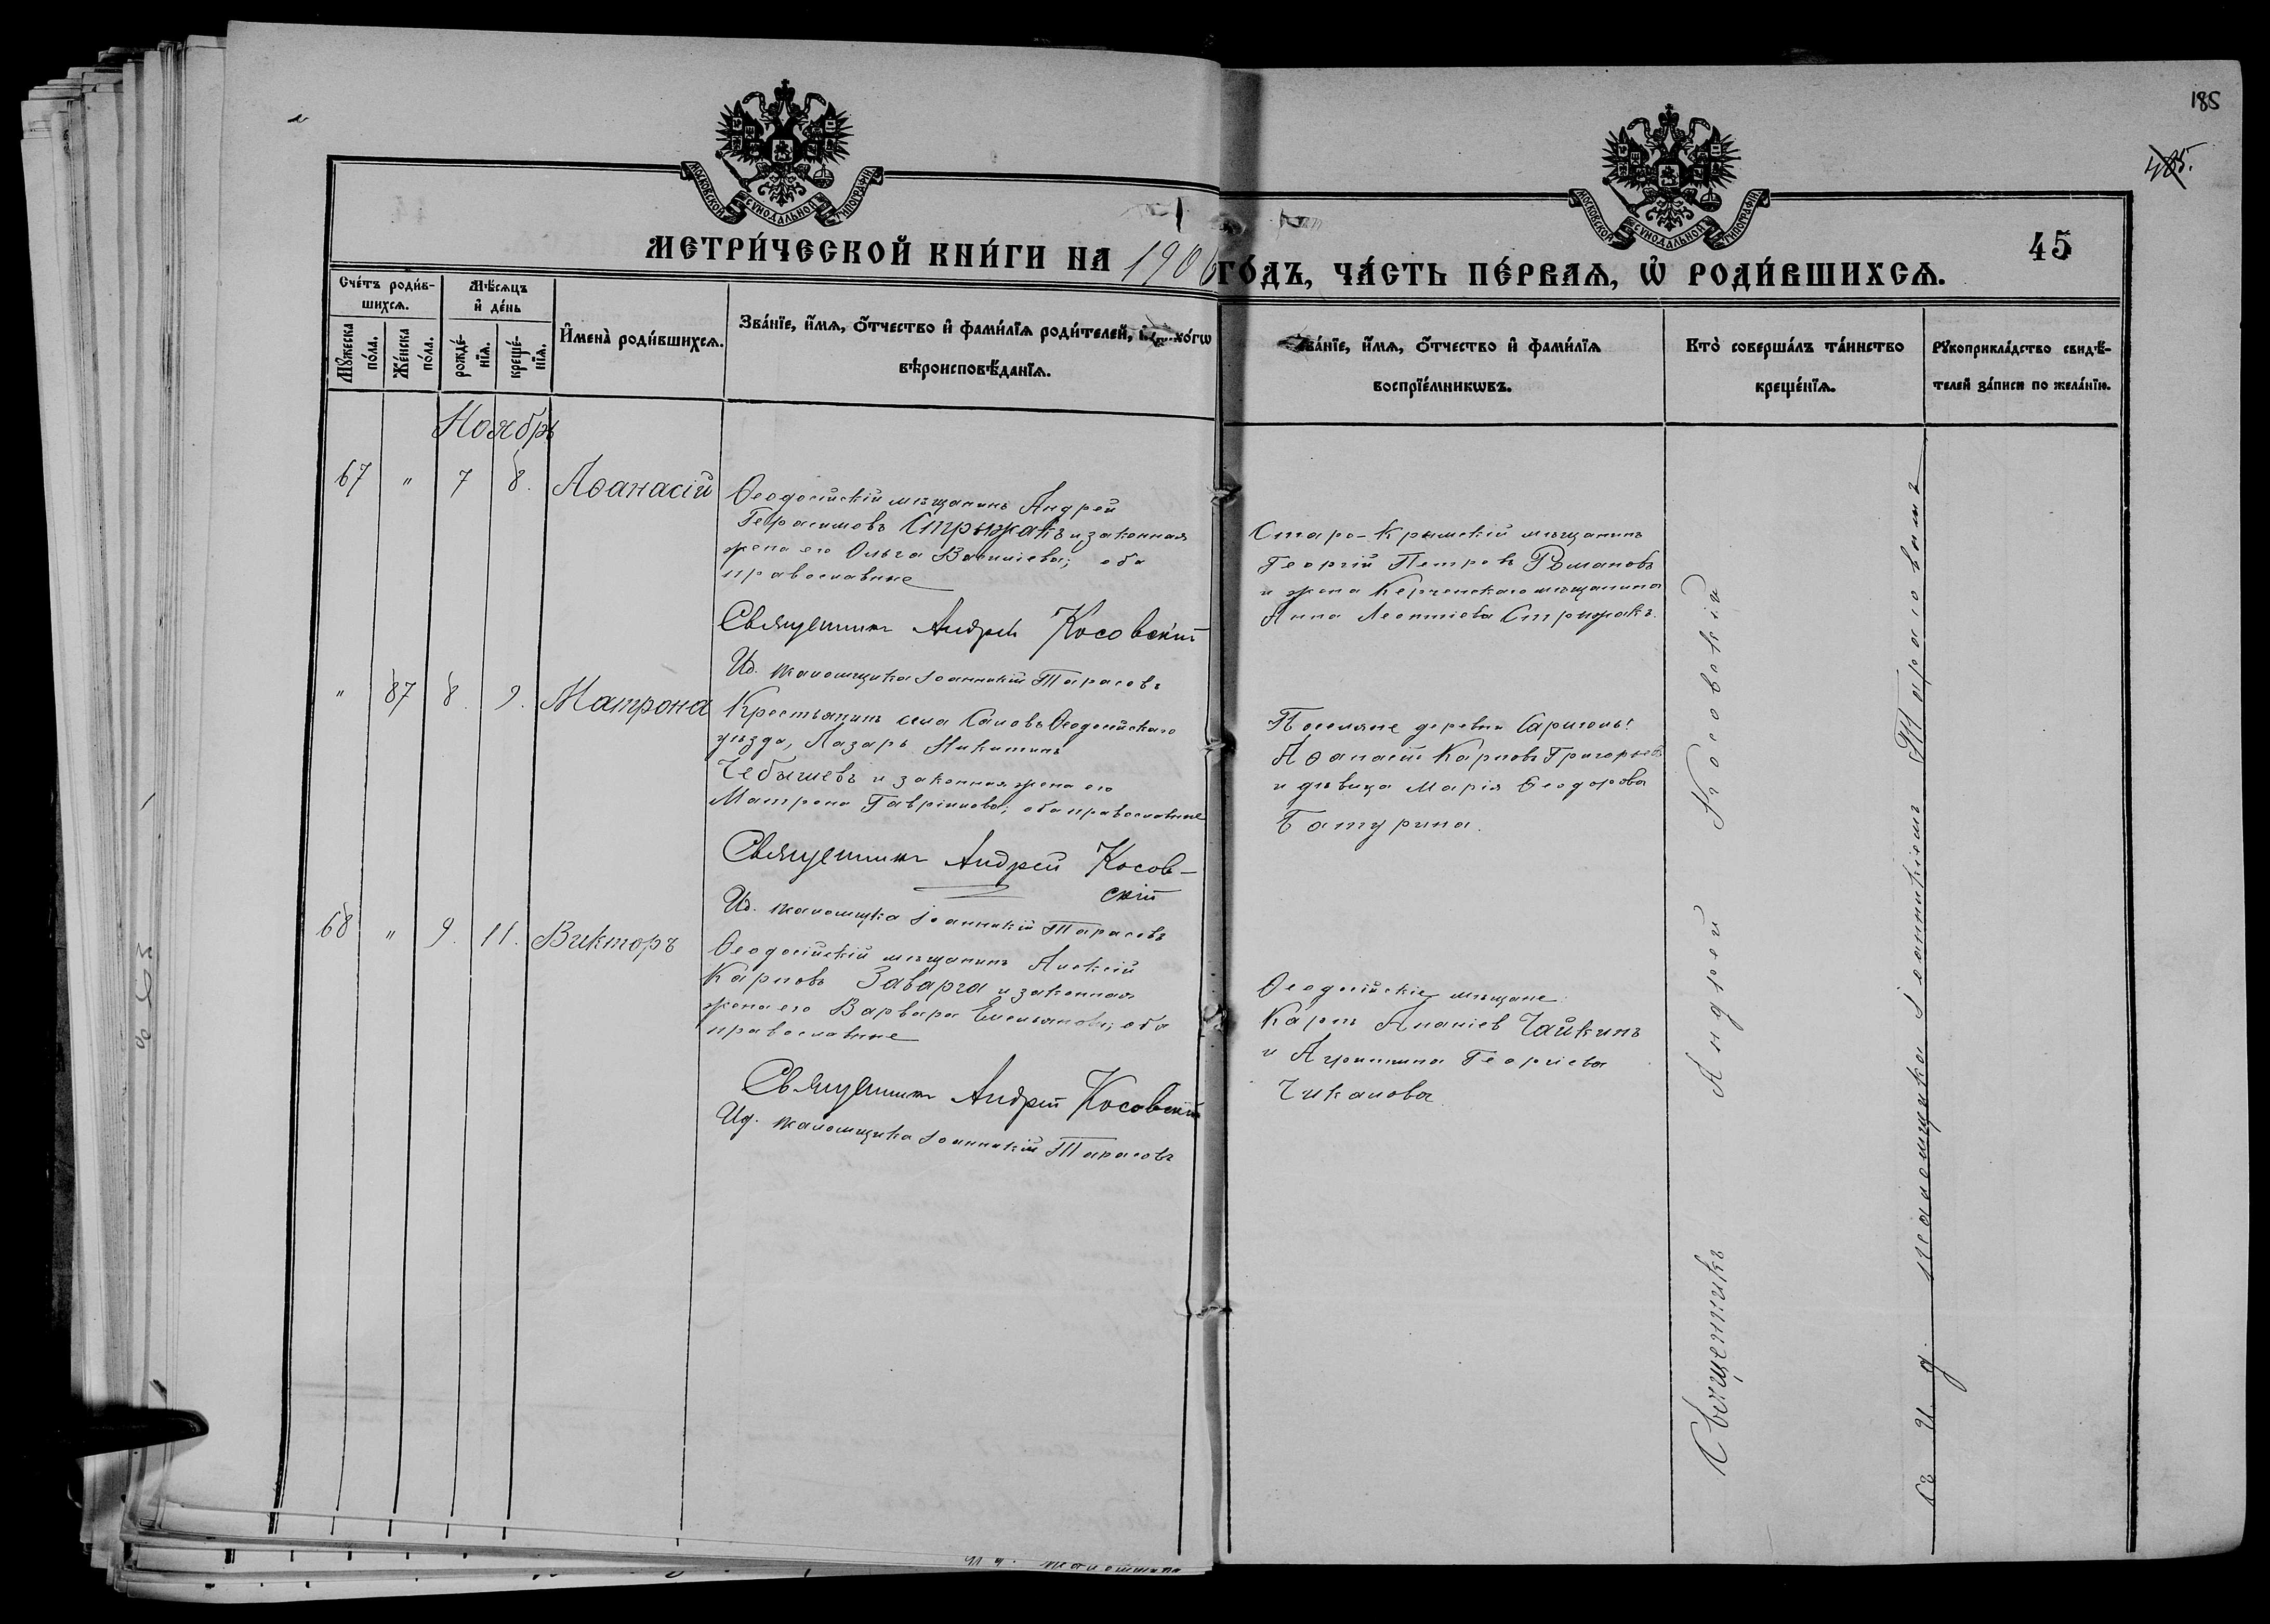 185
405.
МОСКОВСКОЙ СѴНОДАЛЬНОЙ ТИПОГРАФІИ
МОСКОВСКОЙ СѴНОДАЛЬНОЙ ТИПОГРАФІИ
45
МЕТРИ́ЧЕСКОЙ КНИ́ГИ НА 1906 ГО́ДЪ, ЧА́СТЬ ПЕ́РВАЯ, Ѡ҆ РОДИ́ВШИХСЯ.
Сче́тъ роди́в-
шихся.
Мꙋ́жеска по́ла.
Же́нска по́ла.
Мѣ́сяцъ
и҆ де́нь
рожде́-
нїя.
креще́-
нїя.
И҆мена̀ роди́вшихся.
Зва́нїе, и҆́мя, ѻ҆́тчество и҆ фами́лїя роди́телей,
вѣроисповѣ́данїя.
Зва́нїе, и҆́мя, ѻ҆́тчество и҆ фами́лїя
воспрїе́мникѡвъ.
Кто̀ соверша́лъ та́инство
креще́нїя.
Рꙋкоприкла́дство свидѣ́-
телей за́писи по жела́нїю.
Ноябрь
67 " 7 8. Аѳанасій
Ѳеодосійскій мѣщанинъ Андрей
Герасимовъ Стрыжакъ и законная
жена его Ольга Васильева; оба
православные
Священникъ Андрей Косовскій
Ид. псаломщика Іоанникій Тарасовъ
Старо-Крымскій мѣщанинъ
Георгій Петровъ Романовъ
и жена Керченскаго мѣщанина
Анна Леонтіева Стрижакъ.
" 87 8. 9. Матрона
Крестьянинъ села Саловъ Ѳеодосійскаго
уѣзда, Лазарь Никитинъ
Чебышевъ и законная жена его
Матрона Гавріилова; оба православные
Священникъ Андрей Косов-
скій
Ид. псаломщика Іоанникій Тарасовъ
Поселяне деревни Сариголь:
Аѳанасій Карповъ Григорьевъ
и дѣвица Марія Ѳеодорова
Батурина.
68 " 9. 11. Викторъ
Ѳеодосійскій мѣщанинъ Алексій
Карповъ Заварга и законная
жена его Варвара Емельянова; оба
православные
Священникъ Андрей Косовскій
Ид. псаломщика Іоанникій Тарасовъ
Ѳеодосійскіе мѣщане:
Карпъ Ананіев Чайкинъ
и Агрипина Георгіева
Чикалова
Священникъ Андрей Косовскій
съ И. д. псаломщика Іоанникіемъ Тарасовымъ